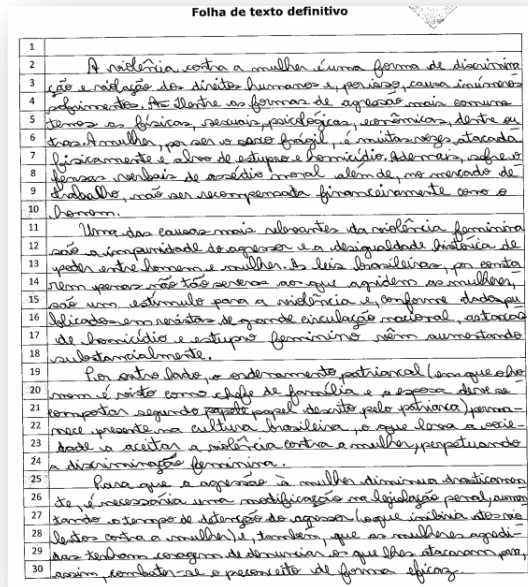 Folha de texto definitivo
1
2 A violência contra a mulher é uma forma de discrimina
3 ção e violação dos direitos humanos e, por isso, causa inúmeros
4 sofrimentos. As dentre as formas de agressão mais comuns
5 temos as físicas, sexuais, psicológicas, econômicas, dentre ou
6 tras. A mulher, por ser o sexo frágil, é muitas vezes atacada
7 fisicamente e alvo de estupro e homicídio. Ademais, sofre o
8 fensas verbais de assédio moral alem de, no mercado de
9 trabalho, não ser recompensada financeiramente como o
10 homem.
11 Uma das causas mais relevantes da violência feminina
12 são a impunidade do agressor e a desigualdade histórica de
13 poder entre homem e mulher. As leis brasileiras, por conte
14 rem penas não tão severas aos que agridem as mulheres,
15 são um estímulo para a violência e, conforme dados pu
16 blicados em revistas de grande circulação nacional, as taxas
17 de homicídio e estupro feminino vêm aumentando
18 substancialmente.
19 Por outro lado, o ordenamento patriarcal (em que o ho
20 mem é visto como chefe de família e a esposa deve se
21 comportar segundo papel descrito pelo patriarca) perma-
22 nece presente na cultura brasileira, o que leva a socie-
23 dade a aceitar a violência contra a mulher, perpetuando
24 a discriminação feminina.
25 Para que a agressão à mulher diminua drasticamen
26 te, é necessária uma modificação na legislação penal, aumen
27 tando o tempo de detenção do agressor (o que inibiria atos vio
28 lentos contra a mulher) e, também, que as mulheres agredi-
29 das tenham coragem de denunciar os que lhes atacaram para,
30 assim, combater-se o preconceito de forma eficaz.